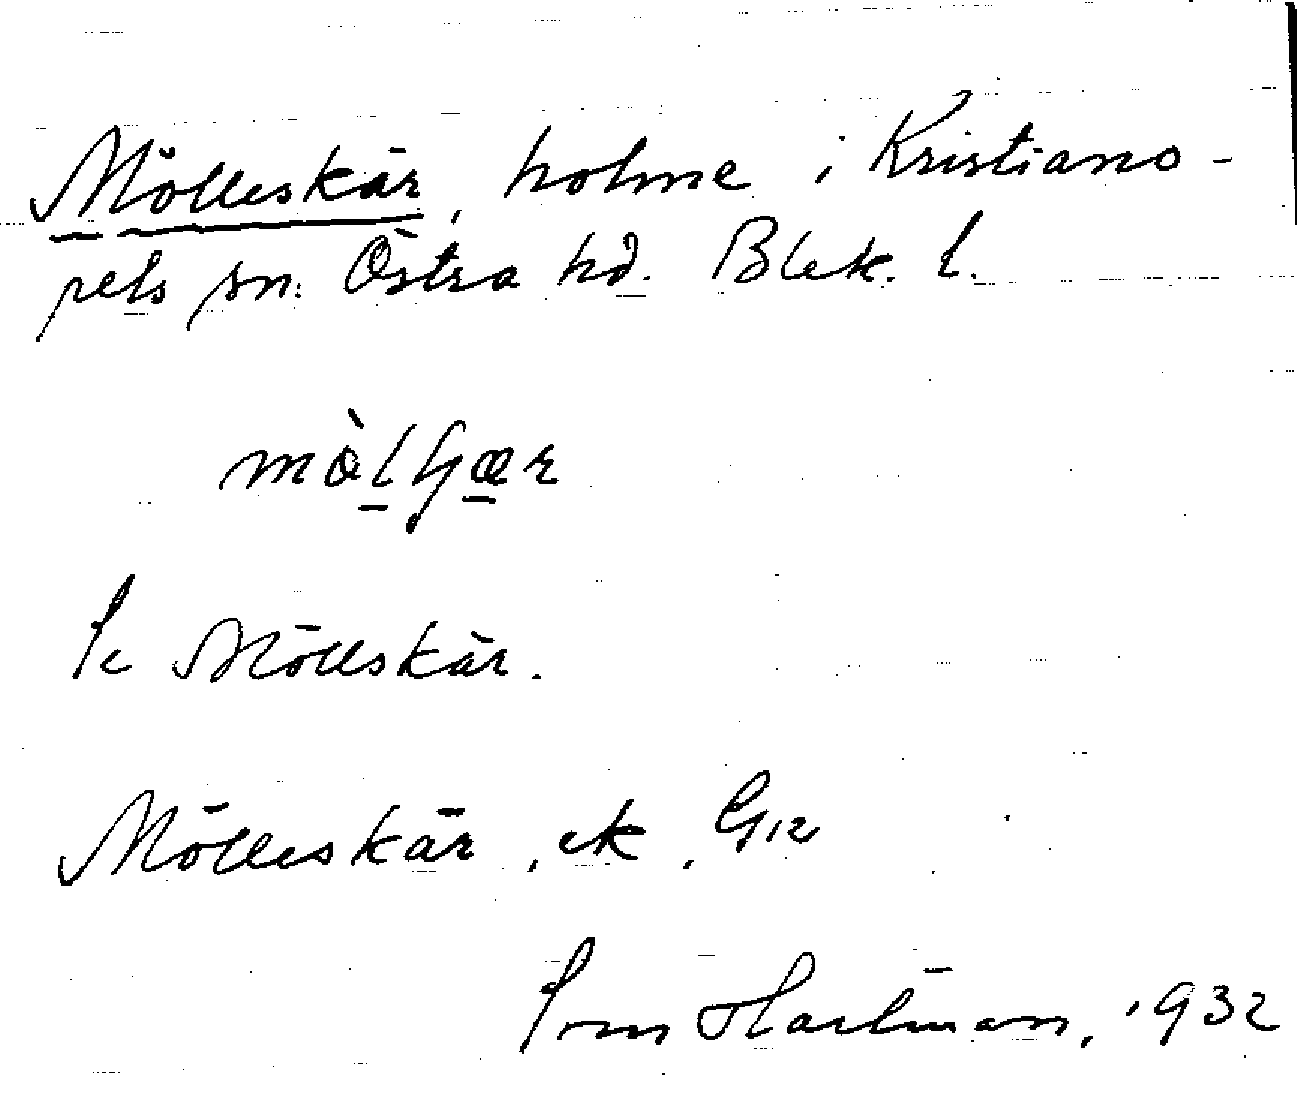 Mölleskär, holme i Kristiano-
pels sn. Östra hd. Blek. l.
Möllskär.
Mölleskär, ek.
Hartman, 1932